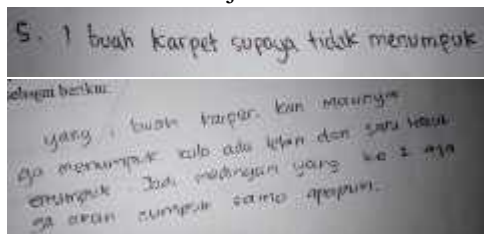 5. 1 buah karpet supaya tidak menumpuk
sebagai berikut.
yang 1 buah karpet. kan maunya
ga menumpuk kalo ada lebih dari satu
Jadi mendingan yang ke 1 aja
ga akan numpuk sama apapun.